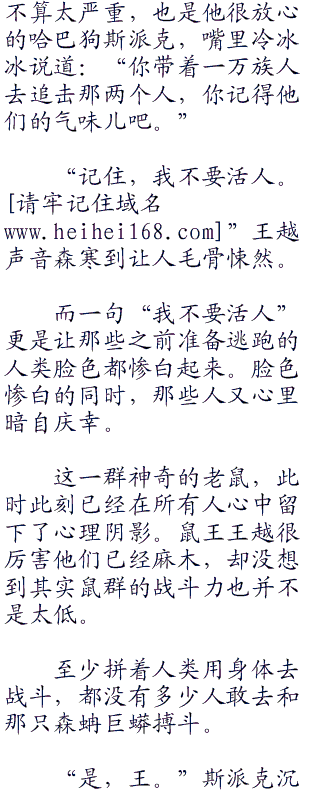 不算太严重，也是他很放心
的哈巴狗斯派克，嘴里冷冰
冰说道：“你带着一万族人
去追击那两个人，你记得他
们的气味儿吧。”
“记住，我不要活人。
[请牢记住域名
www.heihei168.com]”王越
声音森寒到让人毛骨悚然。
而一句“我不要活人”
更是让那些之前准备逃跑的
人类脸色都惨白起来。脸色
惨白的同时，那些人又心里
暗自庆幸。
这一群神奇的老鼠，此
时此刻已经在所有人心中留
下了心理阴影。鼠王王越很
厉害他们已经麻木，却没想
到其实鼠群的战斗力也并不
是太低。
至少拼着人类用身体去
战斗，都没有多少人敢去和
那只森蚺巨蟒搏斗。
“是，王。”斯派克沉